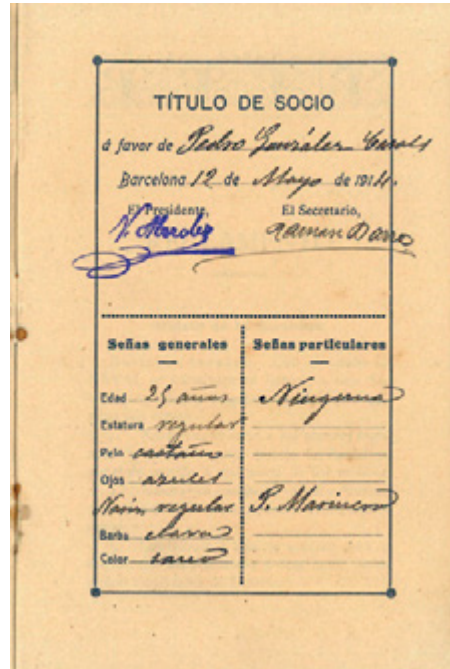 TÍTULO DE SOCIO
á favor de Pedro González
Barcelona 12 de Mayo de 1914.
El Presidente, El Secretario,
Ramon
Señas generales
Edad 25 años
Estatura regular
Pelo castaño
Ojos azules
Nariz regular
Barba clara
Color sano
Señas particulares
Ninguna
P. Marinero